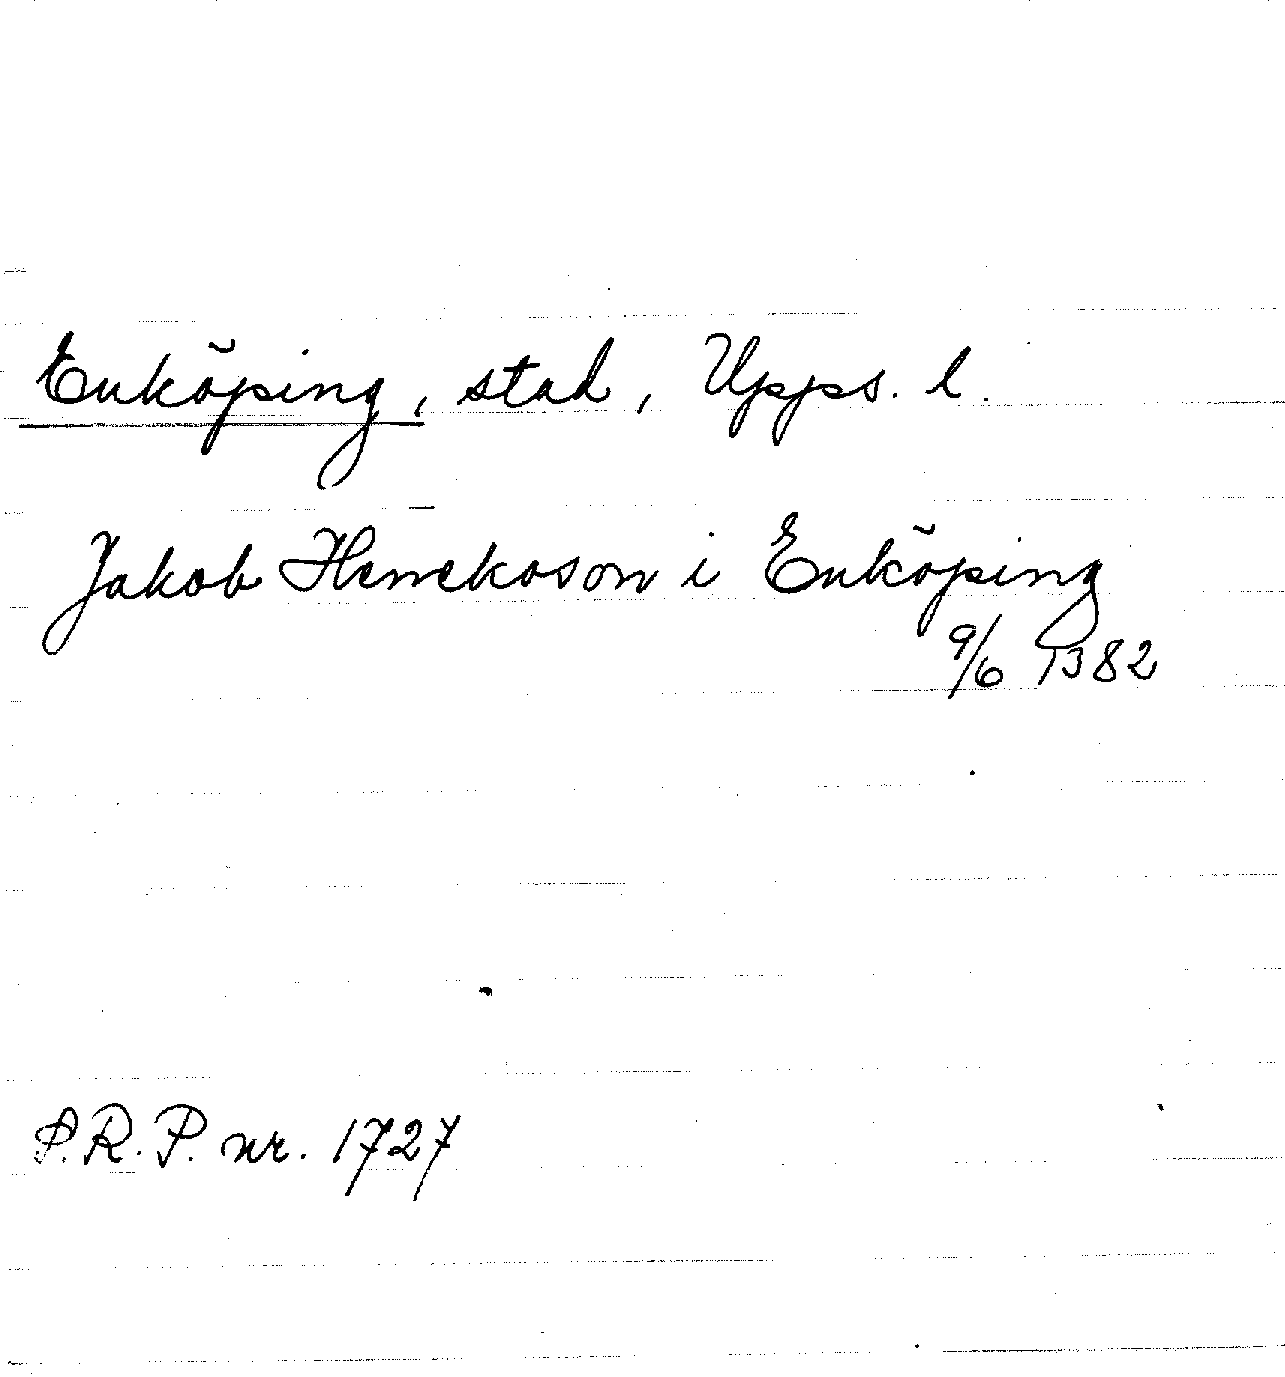 Enköping, stad, Upps. l.
Jakob Henekason i Enköping
9/6 1382
S.R.P. nr. 1727